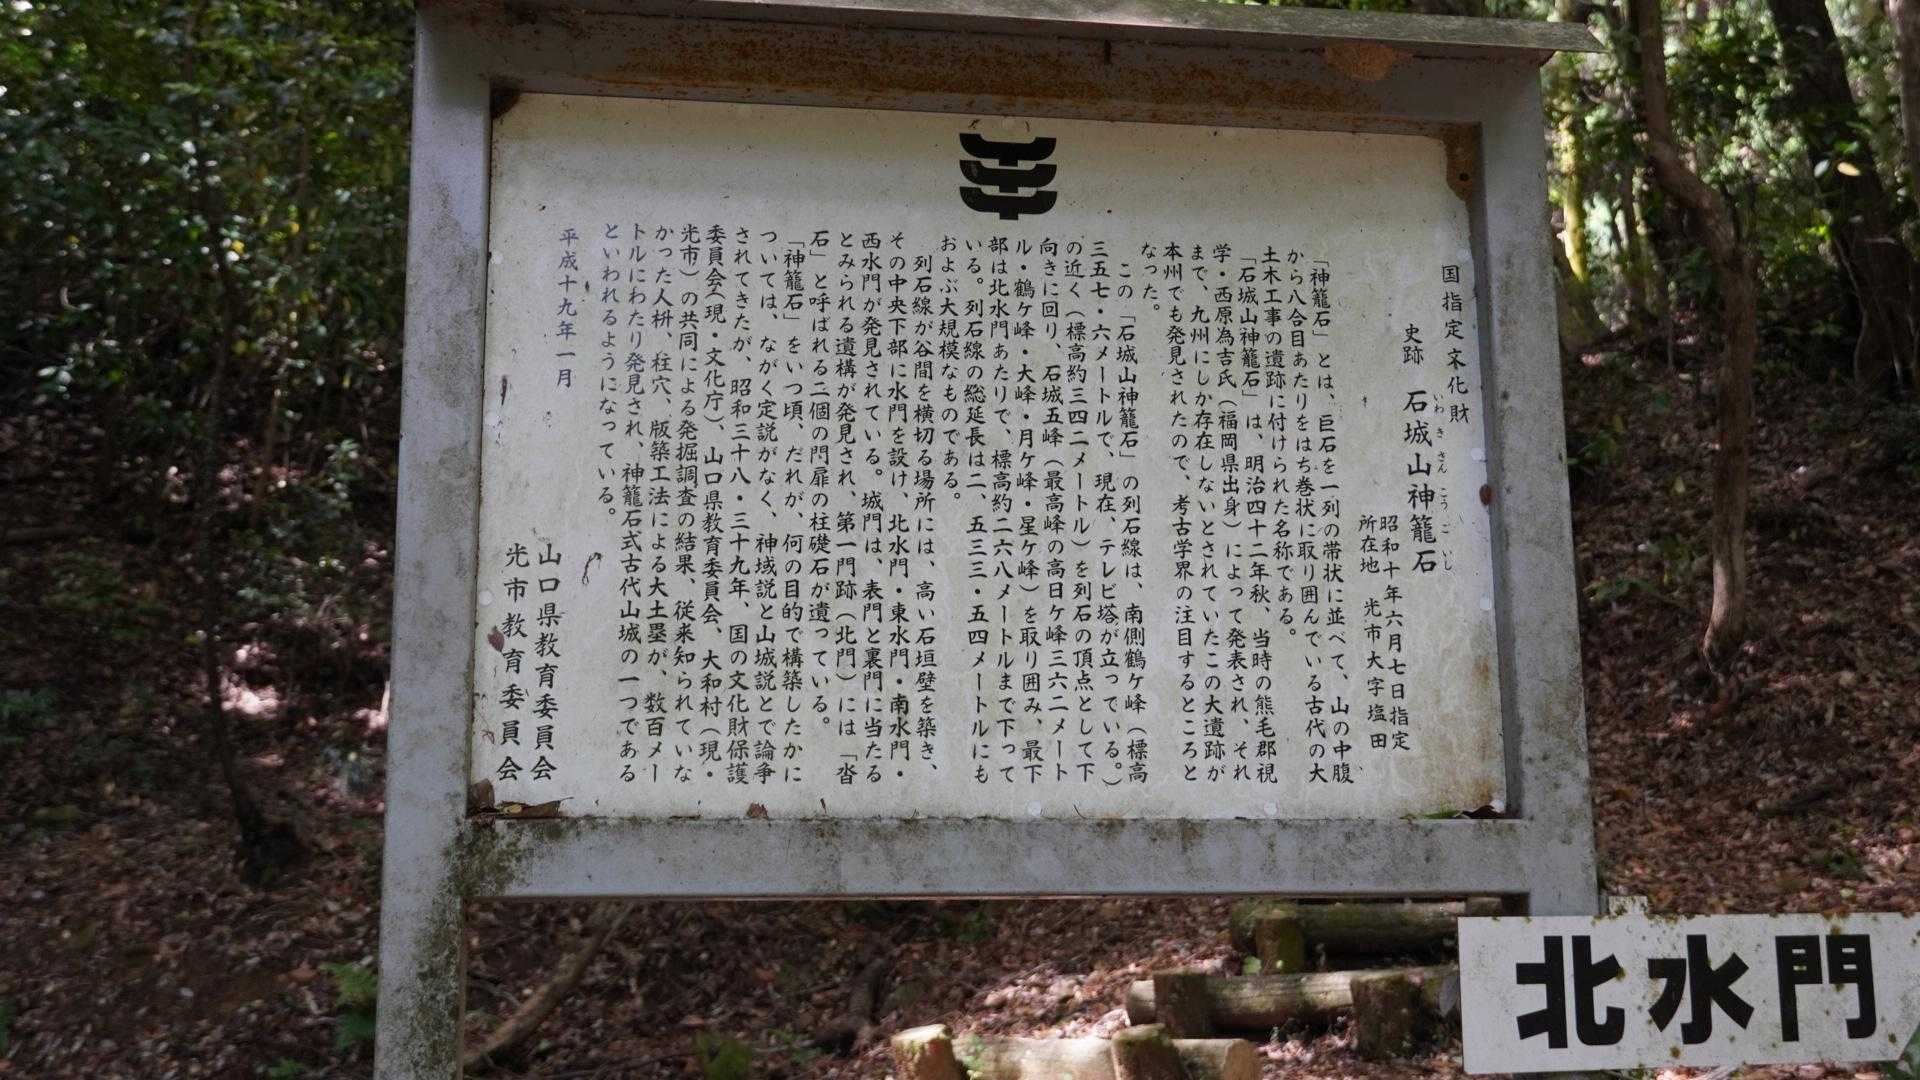 国指定文化財
史跡 石城山神籠石
いわきさんこうごいし
昭和十年六月七日指定
所在地 光市大字塩田
「神籠石」とは、巨石を一列の帯状に並べて、山の中腹
から八合目あたりをはち巻状に取り囲んでいる古代の大
土木工事の遺跡に付けられた名称である。
「石城山神籠石」は、明治四十二年秋、当時の熊毛郡視
学・西原為吉氏（福岡県出身）によって発表され、それ
まで、九州にしか存在しないとされていたこの大遺跡が
本州でも発見されたので、考古学界の注目するところと
なった。
この「石城山神籠石」の列石線は、南側鶴ケ峰（標高
三五七・六メートルで、現在、テレビ塔が立っている。）
の近く（標高約三四二メートル）を列石の頂点として下
向きに回り、石城五峰（最高峰の高日ケ峰三六二メート
ル・鶴ケ峰・大峰・月ケ峰・星ケ峰）を取り囲み、最下
部は北水門あたりで、標高約二六八メートルまで下って
いる。列石線の総延長は二、五三三・五四メートルにも
およぶ大規模なものである。
列石線が谷間を横切る場所には、高い石垣壁を築き、
その中央下部に水門を設け、北水門・東水門・南水門・
西水門が発見されている。城門は、表門と裏門に当たる
とみられる遺構が発見され、第一門跡（北門）には「沓
石」と呼ばれる二個の門扉の柱礎石が遺っている。
「神籠石」をいつ頃、だれが、何の目的で構築したかに
ついては、ながく定説がなく、神域説と山城説とで論争
されてきたが、昭和三十八・三十九年、国の文化財保護
委員会（現・文化庁）、山口県教育委員会、大和村（現・
光市）の共同による発掘調査の結果、従来知られていな
かった人枡、柱穴、版築工法による大土塁が、数百メー
トルにわたり発見され、神籠石式古代山城の一つである
といわれるようになっている。
平成十九年一月
山口県教育委員会
光市教育委員会
北水門